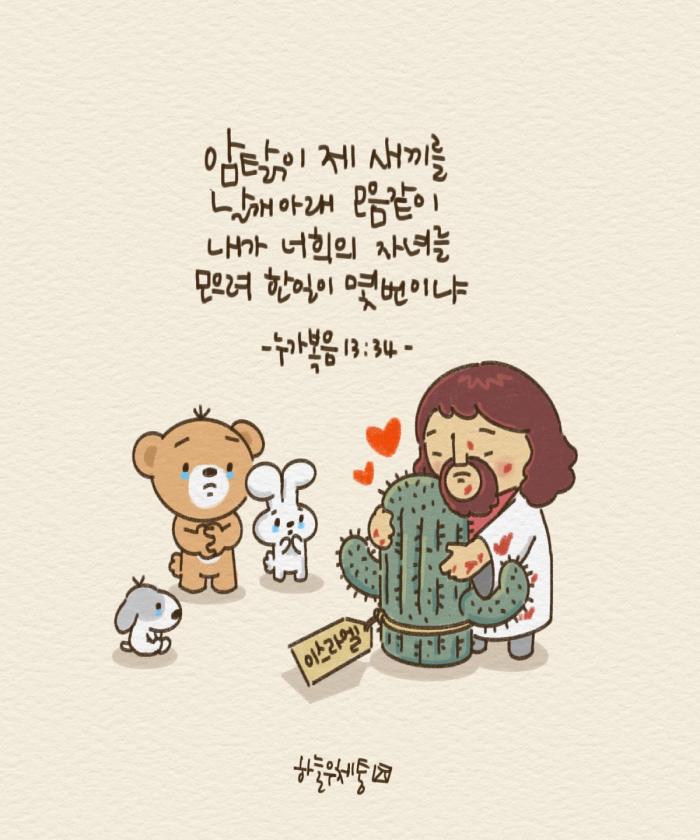 암탉이 제 새끼를
날개아래 모음같이
내가 너희의 자녀를
모으려 한일이 몇번이냐
-누가복음 13:34-
이스라엘
하늘우체통